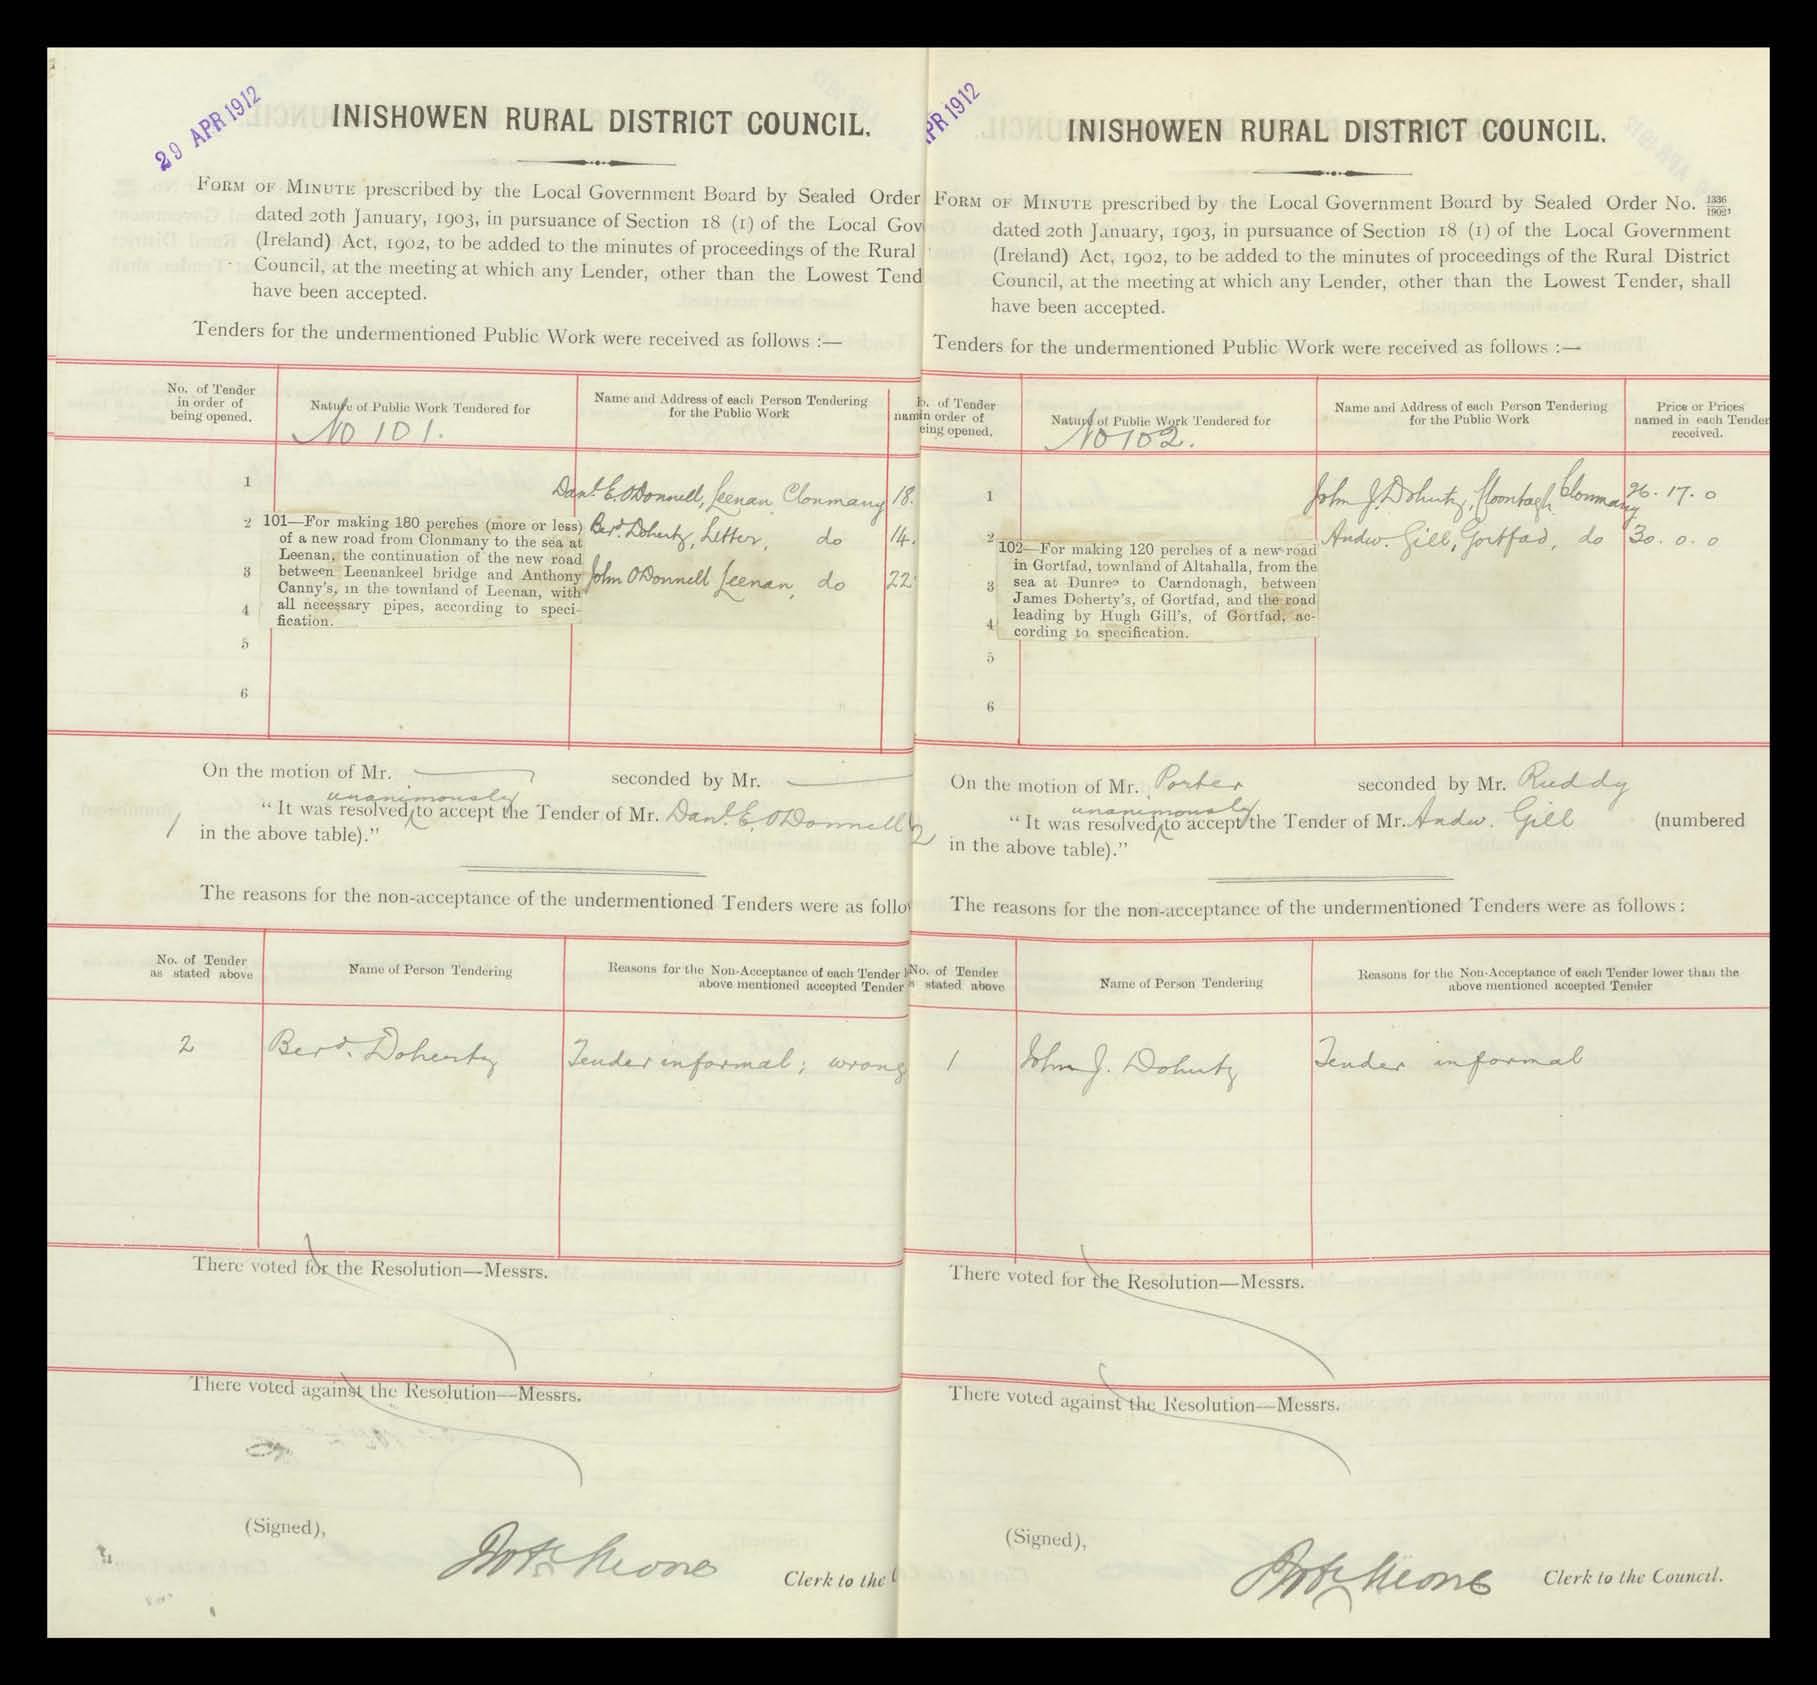 29 APR 1912
INISHOWEN RURAL DISTRICT COUNCIL.
FORM OF MINUTE prescribed by the Local Government Board by Sealed Order
dated 20th January, 1903, in pursuance of Section 18 (1) of the Local Gov
(Ireland) Act, 1902, to be added to the minutes of proceedings of the Rural
Council, at the meeting at which any Lender, other than the Lowest Tend
have been accepted.
Tenders for the undermentioned Public Work were received as follows :—
No. of Tender
in order of
being opened.
Nature of Public Work Tendered for
No 101.
Name and Address of each Person Tendering
for the Public Work
nam
1 Danl. E. O'Donnell, Leenan Clonmany 18.
2 Berd. Doherty, Letter, do 14.
3 John O'Donnell Leenan, do 22
4
5
6
101—For making 180 perches (more or less)
of a new road from Clonmany to the sea at
Leenan, the continuation of the new road
between Leenankeel bridge and Anthony
Canny's, in the townland of Leenan, with
all necessary pipes, according to speci-
fication.
On the motion of Mr. — seconded by Mr. —
unanimously
"It was resolved to accept the Tender of Mr. Danl. E. O'Donnell
1 in the above table)."
The reasons for the non-acceptance of the undermentioned Tenders were as follo
No. of Tender
as stated above
Name of Person Tendering
Reasons for the Non-Acceptance of each Tender
above mentioned accepted Tender
2 Berd. Doherty Tender informal; wrong
There voted for the Resolution—Messrs.
There voted against the Resolution—Messrs.
(Signed),
Clerk to the
PR 1912
INISHOWEN RURAL DISTRICT COUNCIL.
FORM OF MINUTE prescribed by the Local Government Board by Sealed Order No. 1336/1902,
dated 20th January, 1903, in pursuance of Section 18 (1) of the Local Government
(Ireland) Act, 1902, to be added to the minutes of proceedings of the Rural District
Council, at the meeting at which any Lender, other than the Lowest Tender, shall
have been accepted.
Tenders for the undermentioned Public Work were received as follows :—
o. of Tender
in order of
eing opened.
Nature of Public Work Tendered for
No 102.
Name and Address of each Person Tendering
for the Public Work
Price or Prices
named in each Tender
received.
1 John J. Doherty, Clonmany 26. 17. 0
2 Andw. Gill, Gortfad, do 30. 0. 0
3
4
5
6
102—For making 120 perches of a new road
in Gortfad, townland of Altahalla, from the
sea at Dunree to Carndonagh, between
James Doherty's, of Gortfad, and the road
leading by Hugh Gill's, of Gortfad, ac-
cording to specification.
On the motion of Mr. Porter seconded by Mr. Ruddy
unanimously
"It was resolved to accept the Tender of Mr. Andw. Gill (numbered
2 in the above table)."
The reasons for the non-acceptance of the undermentioned Tenders were as follows :
No. of Tender
s stated above
Name of Person Tendering
Reasons for the Non-Acceptance of each Tender lower than the
above mentioned accepted Tender
1 John J. Doherty Tender informal
There voted for the Resolution—Messrs.
There voted against the Resolution—Messrs.
(Signed),
Clerk to the Council.